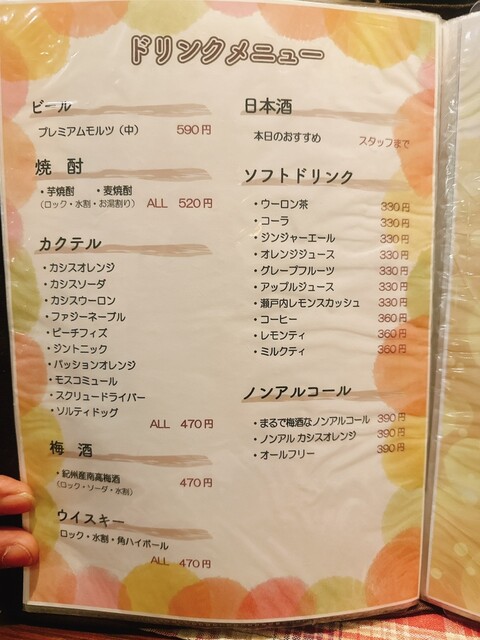 ドリンクメニュー
ビール
プレミアムモルツ（中） 590円
焼 酎
・芋焼酎 ・麦焼酎
（ロック・水割・お湯割り） ALL 520円
カクテル
・カシスオレンジ
・カシスソーダ
・カシスウーロン
・ファジーネーブル
・ピーチフィズ
・ジントニック
・パッションオレンジ
・モスコミュール
・スクリュードライバー
・ソルティドッグ
ALL 470円
梅 酒
・紀州産南高梅酒
（ロック・ソーダ・水割） 470円
ウイスキー
ロック・水割・角ハイボール
ALL 470円
日本酒
本日のおすすめ スタッフまで
ソフトドリンク
・ウーロン茶 330円
・コーラ 330円
・ジンジャーエール 330円
・オレンジジュース 330円
・グレープフルーツ 330円
・アップルジュース 330円
・瀬戸内レモンスカッシュ 330円
・コーヒー 360円
・レモンティ 360円
・ミルクティ 360円
ノンアルコール
・まるで梅酒なノンアルコール 390円
・ノンアル カシスオレンジ 390円
・オールフリー 390円